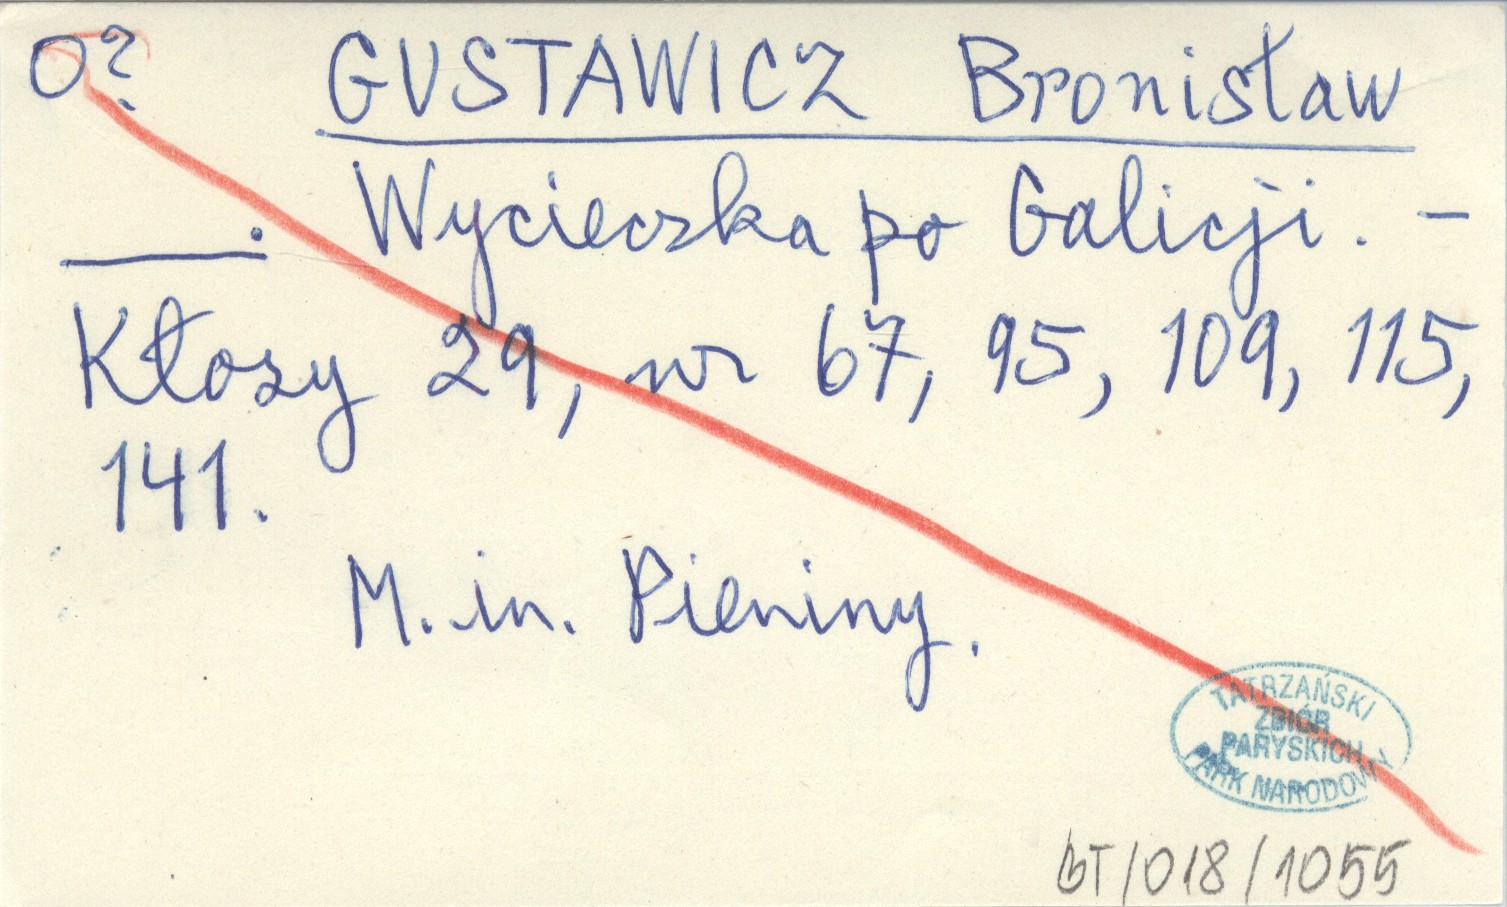 O? GUSTAWICZ Bronisław
____. Wycieczka po Galicji. –
Kłosy 29, nr 67, 95, 109, 115,
141.
M. in. Pieniny.
TATRZAŃSKI
ZBIÓR
PARYSKICH
PARK NARODOWY
BT/018/1055